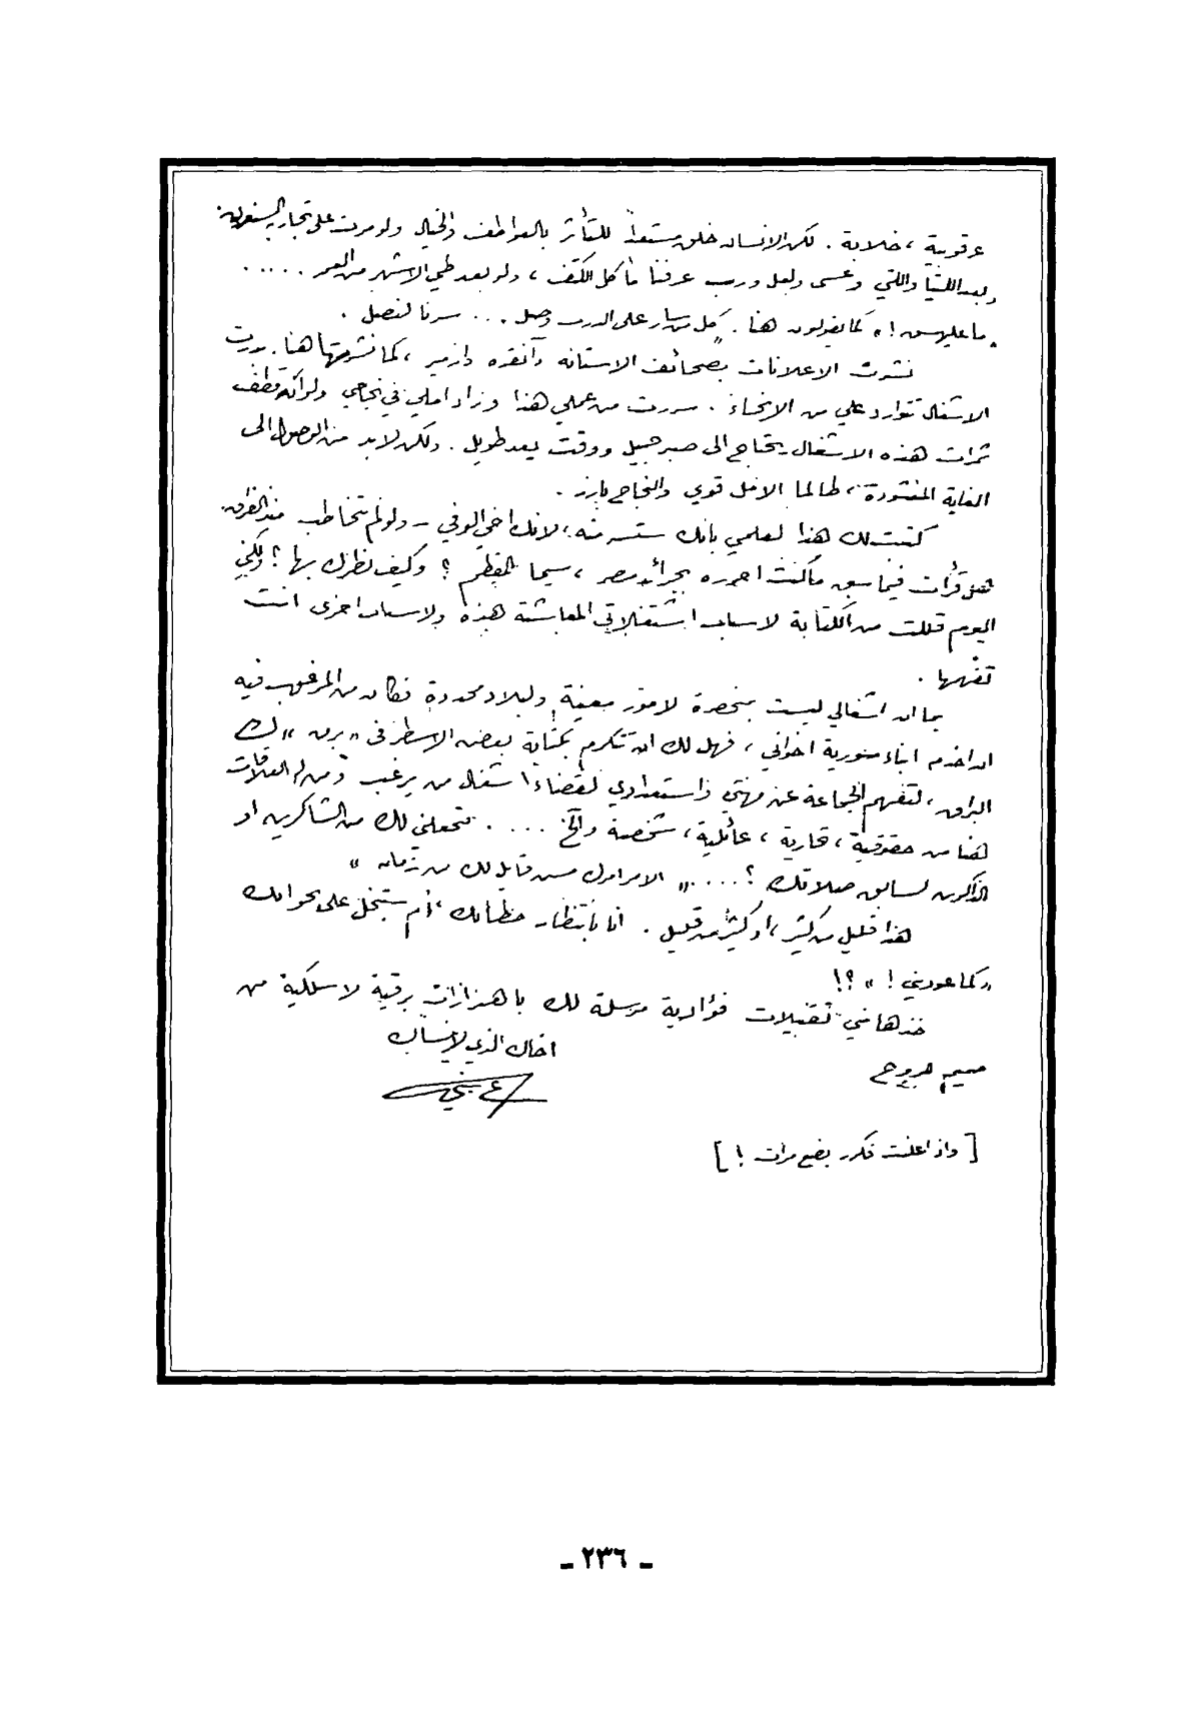 عرقوبية، خلابة. لكن الانسان خلق مستعداً للتأثر بالعواطف والخيال ولو مرت على تجاربه السنون.
وبعد اللتيا واللتي وعسى ولعل ورب عرفنا ماكل الكتف، ولو بعد طي الاشهر من العمر .....
„ما عليهش!" كما يقولون هنا. „كل من سار على الدرب وصل" ... سرنا لنصل.
نشرت الاعلانات بصحائف الاستانه وآنقره وازمير، كما نشرتها هنا. بدت
الاشغال تتوارد علي من الانحاء. سررت من عملي هذا وزاد املي في نجاحي ولو ان قطف
ثمرات هذه الاشغال يحتاج الى صبر جميل ووقت بعد طويل. ولكن لابد من الوصول الى
الغاية المنشودة، طالما الامل قوي والنجاح بارز.
كتبت لك هذا لعلمي بانك ستسر منه، لانك اخي الوفي – ولو لم نتخاطب منذ الفراق.
هل قرأت فيما سبق ماكنت احرره بجرائد مصر، سيما المقطم؟ وكيف نظرك بها؟ ولكني
اليوم قللت من الكتابة لاسباب اشتغلاتي المعاشية هذه ولاسباب اخرى انت
تفهمها.
بما ان اشغالي ليست بمنحصرة لامور معينة ولبلاد محدودة فكان من المرغوب فيه
ان اخدم ابناء سورية اخواني، فهل لك ان تتكرم بكتابة بعض الاسطر في „برق" لك
البراق، لتفهم الجماعة عن مهنتي واستعدادي لقضاء اشغال من يرغب ومن له العلاقات
هنا من حقوقية، تجارية، عائلية، شخصية والخ .... فتجعلني لك من الشاكرين او
الذاكرين لسابق صلاتك؟ ....„ الامر امرك من قابل لك من زمان "
هذا قليل من كثير، او كثير من قليل. انا بانتظار خطابك، ام ستبخل علي بجوابك
„كما عودتني!"؟!
خذها مني تقبيلات فؤادية مرسلة لك باهتزازات برقية لاسلكية من
صميم الروح
اخاك الذي لا ينساك
[واذ اعلنت فكرر بضع مرات!]
ـ ٢٣٦ ـ